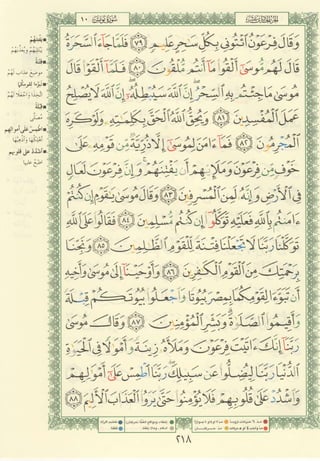 سُورَةُ يُونُسَ ١٠
وَقَالَ فِرْعَوْنُ ٱئْتُونِى بِكُلِّ سَٰحِرٍ عَلِيمٍ ٧٩ فَلَمَّا جَآءَ ٱلسَّحَرَةُ
قَالَ لَهُم مُّوسَىٰٓ أَلْقُوا۟ مَآ أَنتُم مُّلْقُونَ ٨٠ فَلَمَّآ أَلْقَوْا۟ قَالَ
مُوسَىٰ مَا جِئْتُم بِهِ ٱلسِّحْرُ إِنَّ ٱللَّهَ سَيُبْطِلُهُۥٓ إِنَّ ٱللَّهَ لَا يُصْلِحُ
عَمَلَ ٱلْمُفْسِدِينَ ٨١ وَيُحِقُّ ٱللَّهُ ٱلْحَقَّ بِكَلِمَٰتِهِۦ وَلَوْ كَرِهَ
ٱلْمُجْرِمُونَ ٨٢ فَمَآ ءَامَنَ لِمُوسَىٰٓ إِلَّا ذُرِّيَّةٌ مِّن قَوْمِهِۦ عَلَىٰ
خَوْفٍ مِّن فِرْعَوْنَ وَمَلَإِي۟هِمْ أَن يَفْتِنَهُمْ وَإِنَّ فِرْعَوْنَ لَعَالٍ
فِى ٱلْأَرْضِ وَإِنَّهُۥ لَمِنَ ٱلْمُسْرِفِينَ ٨٣ وَقَالَ مُوسَىٰ يَٰقَوْمِ إِن كُنتُمْ
ءَامَنتُم بِٱللَّهِ فَعَلَيْهِ تَوَكَّلُوٓا۟ إِن كُنتُم مُّسْلِمِينَ ٨٤ فَقَالُوا۟ عَلَى ٱللَّهِ
تَوَكَّلْنَا رَبَّنَا لَا تَجْعَلْنَا فِتْنَةً لِّلْقَوْمِ ٱلظَّٰلِمِينَ ٨٥ وَنَجِّنَا
بِرَحْمَتِكَ مِنَ ٱلْقَوْمِ ٱلْكَٰفِرِينَ ٨٦ وَأَوْحَيْنَآ إِلَىٰ مُوسَىٰ وَأَخِيهِ
أَن تَبَوَّءَا لِقَوْمِكُمَا بِمِصْرَ بُيُوتًا وَٱجْعَلُوا۟ بُيُوتَكُمْ قِبْلَةً
وَأَقِيمُوا۟ ٱلصَّلَوٰةَ وَبَشِّرِ ٱلْمُؤْمِنِينَ ٨٧ وَقَالَ مُوسَىٰ
رَبَّنَآ إِنَّكَ ءَاتَيْتَ فِرْعَوْنَ وَمَلَأَهُۥ زِينَةً وَأَمْوَٰلًا فِى ٱلْحَيَوٰةِ
ٱلدُّنْيَا رَبَّنَا لِيُضِلُّوا۟ عَن سَبِيلِكَ رَبَّنَا ٱطْمِسْ عَلَىٰٓ أَمْوَٰلِهِمْ
وَٱشْدُدْ عَلَىٰ قُلُوبِهِمْ فَلَا يُؤْمِنُوا۟ حَتَّىٰ يَرَوُا۟ ٱلْعَذَابَ ٱلْأَلِيمَ ٨٨
٢١٨